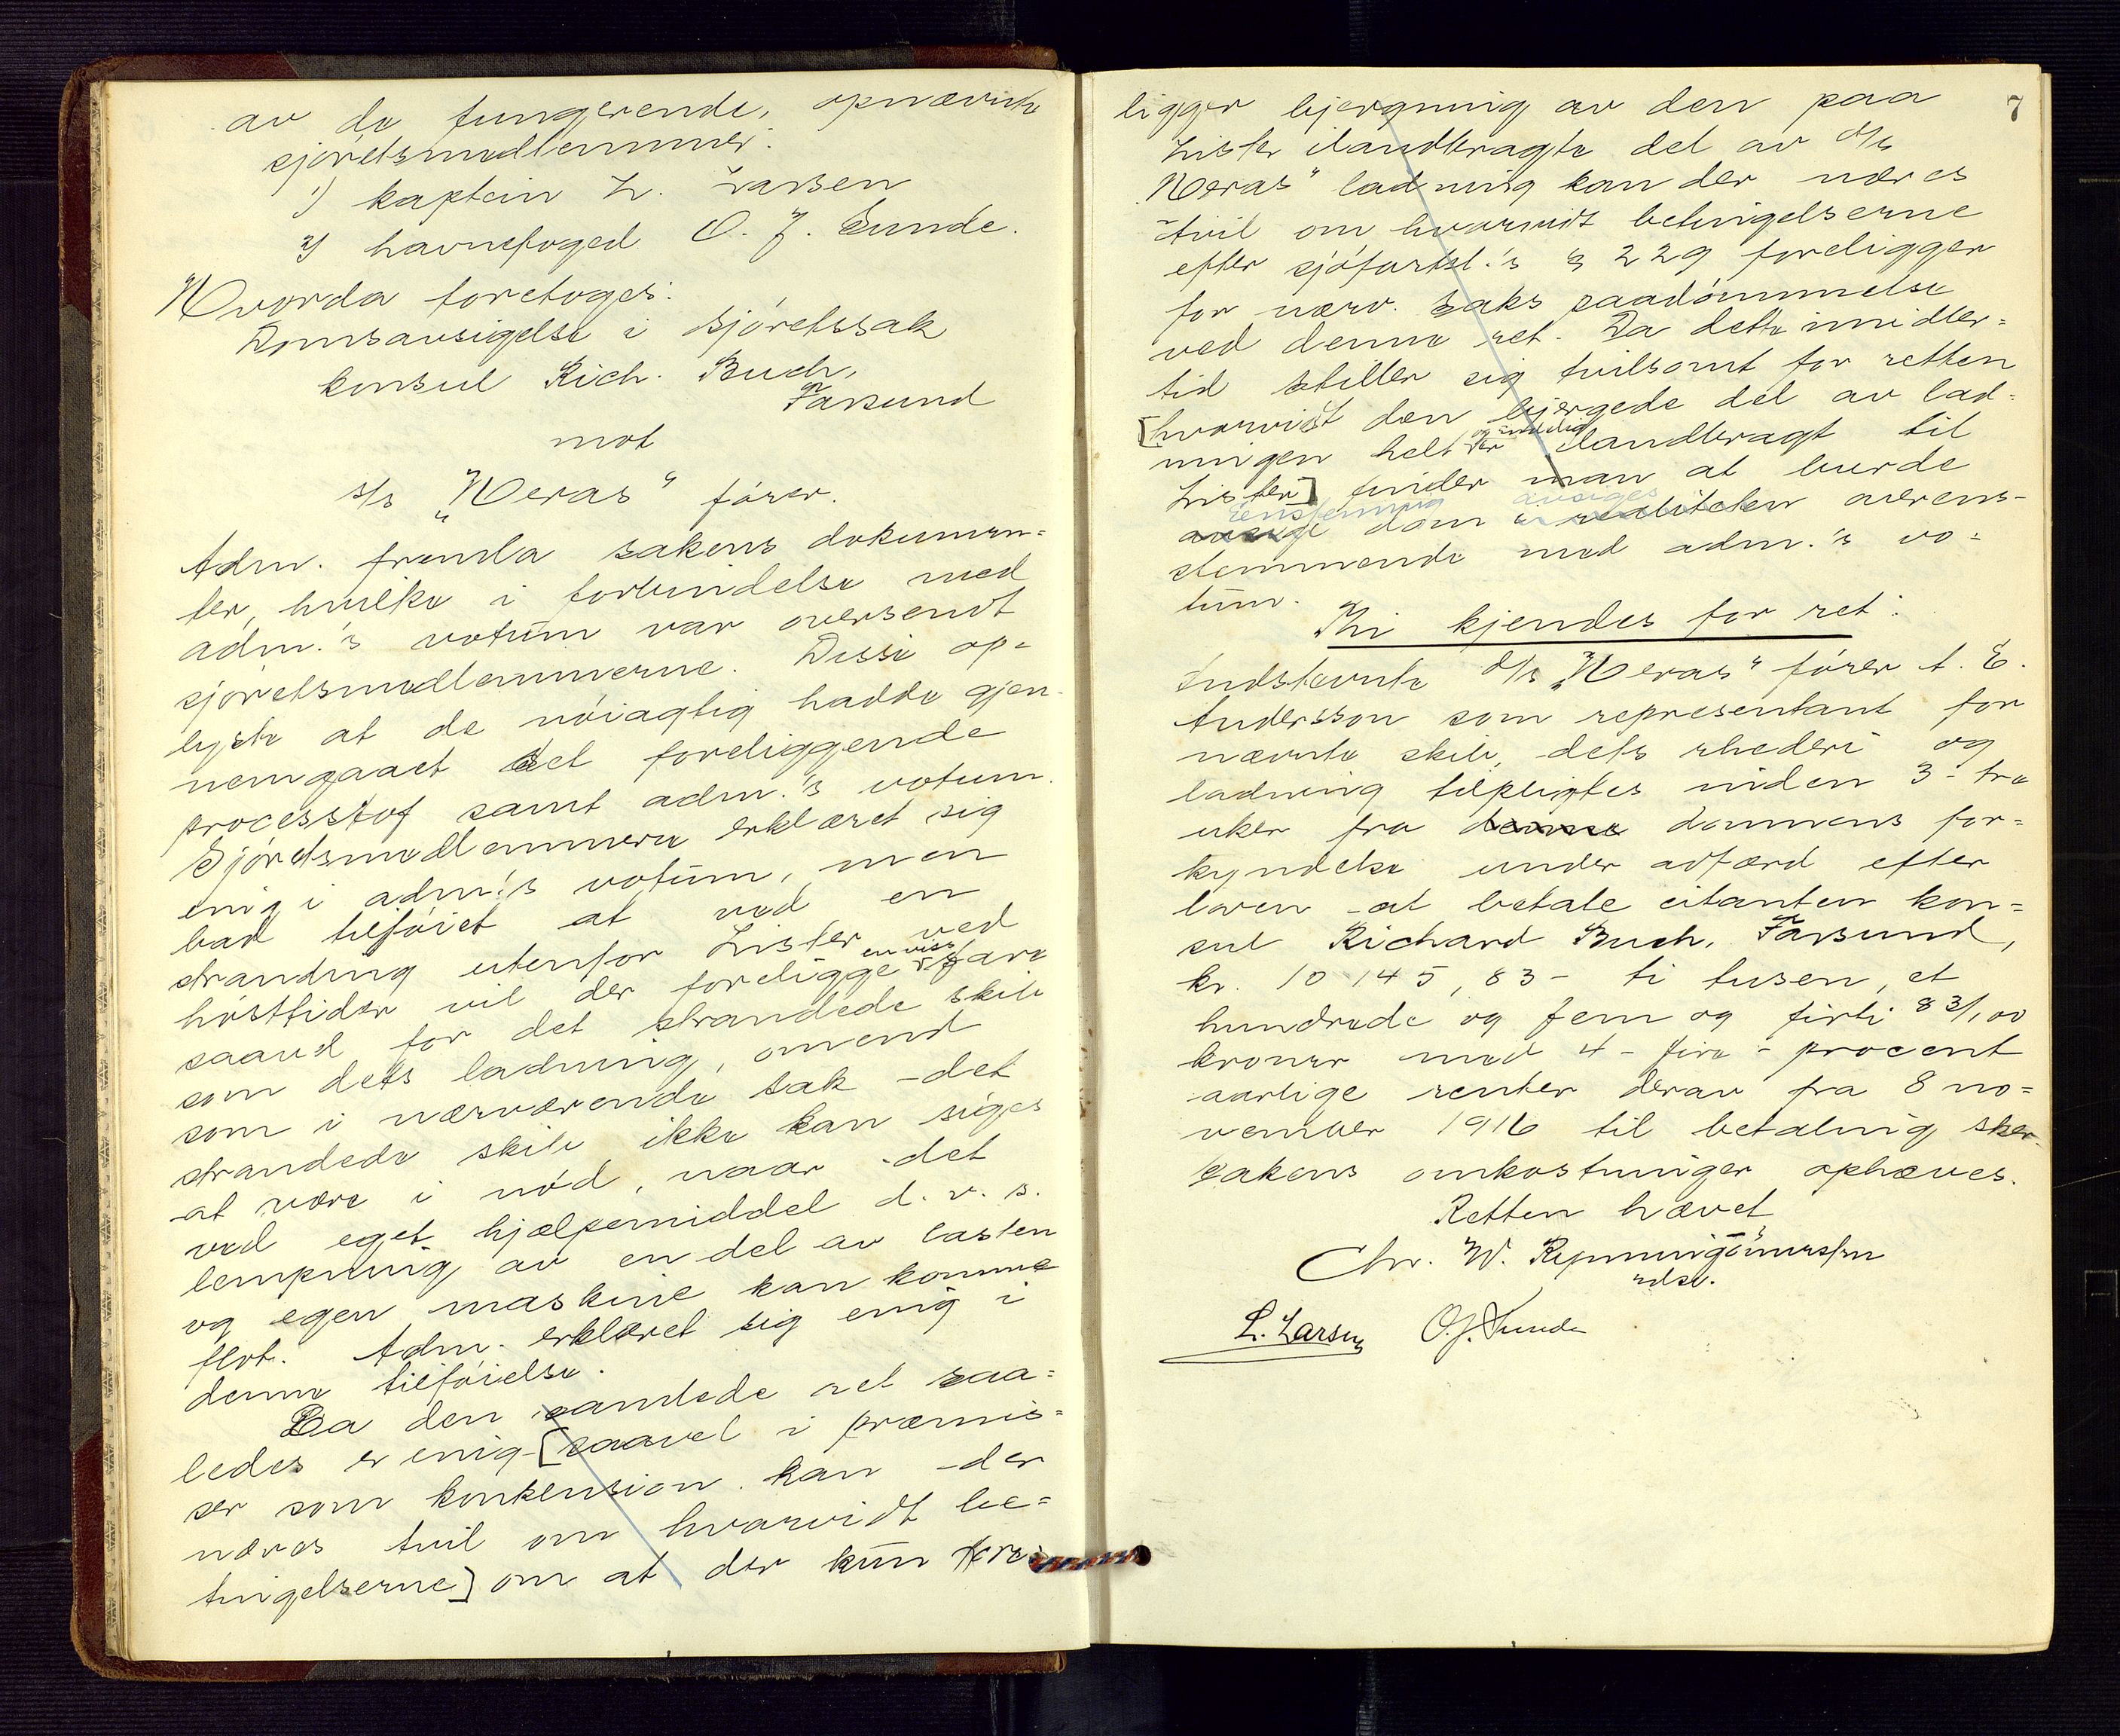 av de fungerende, opnævnte
sjöretsmedlemmer:
1) kaptein L. Larsen
2) havnefoged O. J. Sunde.
Hvorda foretoges:
Domsavsigelse i sjöretssak
konsul Rich. Buch,
Farsund
mot
s/s "Heras" förer.
Adm. fremla sakens dokumen=
ter, hvilke i forbindelse med
adm.'s votum var oversendt
sjöretsmedlemmerne. Disse op=
lyste at de nöiagtig hadde gjen-
nemgaaet det foreliggende
processtof samt adm.'s votum.
Sjöretsmedlemmene erklæret sig
enig i adm.'s votum, men
bad tilföiet at ved en
stranding utenfor Lister ved
hösttider vil der foreligge en viss fare
saavel for det strandede skib
som dets ladning, omend
som i nærværende sak - det
strandede skib ikke kan siges
at være i nöd, naar det
ved eget hjælpemiddel d. v. s.
lempning av en del av lasten
og egen maskine kan komme
flot. Adm. erklæret sig enig i
denne tilföielse.
Da den samlede ret saa=
ledes er enig [saavel i præmis=
ser som konklusion kan der
næres tvil om hvorvidt be=
tingelserne] om at der kun fore=
7
ligger bjergning av den paa
Lister ilandbragte del av s/s
"Heras" ladning kan der næres
tvil om hvorvidt betingelserne
efter sjöfartsl.'s § 229 foreligger
for nærv. saks paadömmelse
ved denne ret. Da dette imidler=
tid stiller sig tvilsomt for retten
[hvorvidt den bjergede del av lad=
ningen helt og endelig er ilandbragt til
Lister] finder man at burde
avsige dom i realiteten overens-
stemmende med adm.'s vo=
tum.
Thi kjendes for ret:
Indstevnte s/s "Heras" förer A. E.
Andersson som representant for
nævnte skib, dets rhederi og
ladning tilpligtes inden 3 - tre
uker fra denne dommens for=
kyndelse under adfærd efter
loven at betale citanten kon=
sul Richard Buch, Farsund,
kr. 10 145,83 - ti tusen, et
hundrede og fem og firti 83/100
kroner med 4 - fire - procent
aarlige renter derav fra 8 no=
vember 1916 til betaling sker.
Sakens omkostninger ophæves.
Retten hævet
Chr. W.
L. Larsen O. J. Sunde